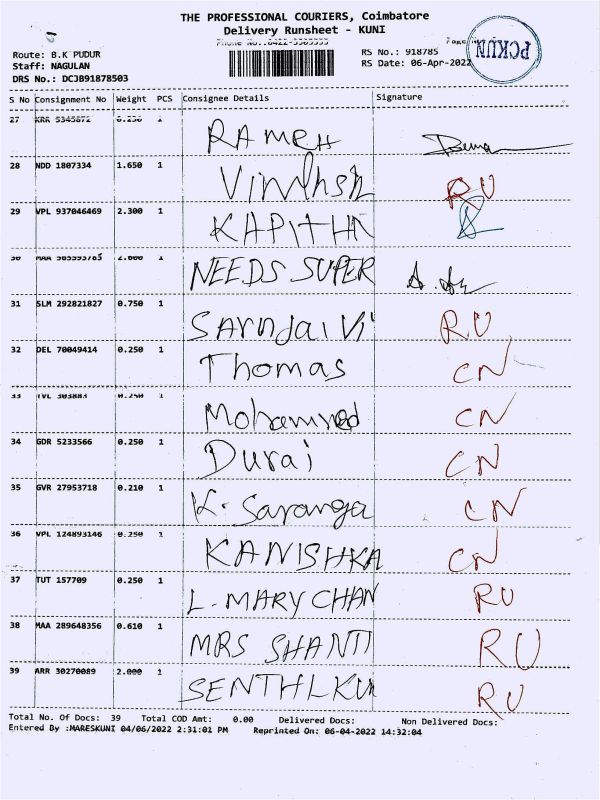 THE PROFESSIONAL COURIERS, Coimbatore
Delivery Runsheet - KUNI
Route: B.K PUDUR
RS No.: 918785
PCKUN
Staff: NAGULAN
RS Date: 06-Apr-2022
DRS No.: DCJB91878503
S No Consignment No Weight PCS Consignee Details Signature
27 KRR 5345872 0.250 1 RAMEH
28 NDD 1807334 1.650 1 Vimlhsh RU
29 VPL 937046469 2.300 1 KAPITHN
30 MAA 2.000 1 NEEDS SUPER
31 SLM 292821827 0.750 1 SArndaiVi RU
32 DEL 70049414 0.250 1 Thomas CN
33 TVL 303883 0.250 1 Mohammed CN
34 GDR 5233566 0.250 1 Durai CN
35 GVR 27953718 0.210 1 K. Saranga CN
36 VPL 124893146 0.250 1 KANISHKA CN
37 TUT 157709 0.250 1 L. MARY CHAN RU
38 MAA 289648356 0.610 1 MRS SHANTI RU
39 ARR 30270089 2.000 1 SENTHLKUM RU
Total No. Of Docs: 39 Total COD Amt: 0.00 Delivered Docs: Non Delivered Docs:
Entered By :MARESKUNI 04/06/2022 2:31:01 PM Reprinted On: 06-04-2022 14:32:04